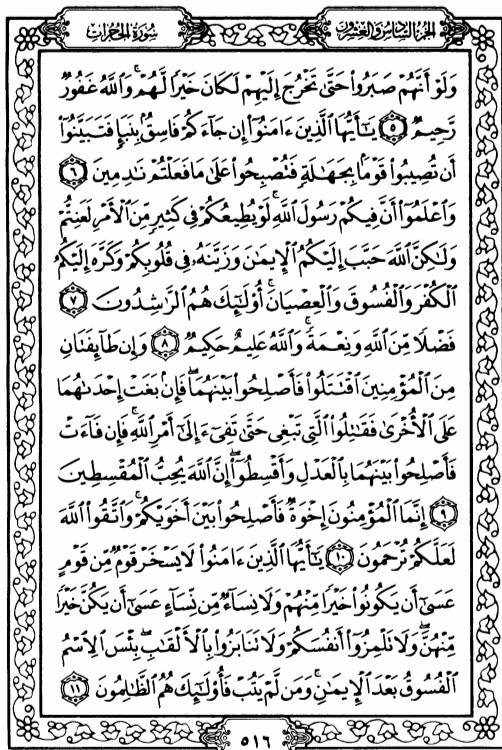 سُورَةُ الحُجُرَات
الجُزْءُ السَّادِسُ وَالعِشْرُونَ
وَلَوْ أَنَّهُمْ صَبَرُوا۟ حَتَّىٰ تَخْرُجَ إِلَيْهِمْ لَكَانَ خَيْرًا لَّهُمْ ۚ وَٱللَّهُ غَفُورٌ
رَّحِيمٌ ٥ يَـٰٓأَيُّهَا ٱلَّذِينَ ءَامَنُوٓا۟ إِن جَآءَكُمْ فَاسِقٌۢ بِنَبَإٍ فَتَبَيَّنُوٓا۟
أَن تُصِيبُوا۟ قَوْمًۢا بِجَهَـٰلَةٍ فَتُصْبِحُوا۟ عَلَىٰ مَا فَعَلْتُمْ نَـٰدِمِينَ ٦
وَٱعْلَمُوٓا۟ أَنَّ فِيكُمْ رَسُولَ ٱللَّهِ ۚ لَوْ يُطِيعُكُمْ فِى كَثِيرٍ مِّنَ ٱلْأَمْرِ لَعَنِتُّمْ
وَلَـٰكِنَّ ٱللَّهَ حَبَّبَ إِلَيْكُمُ ٱلْإِيمَـٰنَ وَزَيَّنَهُۥ فِى قُلُوبِكُمْ وَكَرَّهَ إِلَيْكُمُ
ٱلْكُفْرَ وَٱلْفُسُوقَ وَٱلْعِصْيَانَ ۚ أُو۟لَـٰٓئِكَ هُمُ ٱلرَّٰشِدُونَ ٧
فَضْلًا مِّنَ ٱللَّهِ وَنِعْمَةً ۚ وَٱللَّهُ عَلِيمٌ حَكِيمٌ ٨ وَإِن طَآئِفَتَانِ
مِنَ ٱلْمُؤْمِنِينَ ٱقْتَتَلُوا۟ فَأَصْلِحُوا۟ بَيْنَهُمَا ۖ فَإِنۢ بَغَتْ إِحْدَىٰهُمَا
عَلَى ٱلْأُخْرَىٰ فَقَـٰتِلُوا۟ ٱلَّتِى تَبْغِى حَتَّىٰ تَفِىٓءَ إِلَىٰٓ أَمْرِ ٱللَّهِ ۚ فَإِن فَآءَتْ
فَأَصْلِحُوا۟ بَيْنَهُمَا بِٱلْعَدْلِ وَأَقْسِطُوٓا۟ ۖ إِنَّ ٱللَّهَ يُحِبُّ ٱلْمُقْسِطِينَ
٩ إِنَّمَا ٱلْمُؤْمِنُونَ إِخْوَةٌ فَأَصْلِحُوا۟ بَيْنَ أَخَوَيْكُمْ ۚ وَٱتَّقُوا۟ ٱللَّهَ
لَعَلَّكُمْ تُرْحَمُونَ ١٠ يَـٰٓأَيُّهَا ٱلَّذِينَ ءَامَنُوا۟ لَا يَسْخَرْ قَوْمٌ مِّن قَوْمٍ
عَسَىٰٓ أَن يَكُونُوا۟ خَيْرًا مِّنْهُمْ وَلَا نِسَآءٌ مِّن نِّسَآءٍ عَسَىٰٓ أَن يَكُنَّ خَيْرًا
مِّنْهُنَّ ۖ وَلَا تَلْمِزُوٓا۟ أَنفُسَكُمْ وَلَا تَنَابَزُوا۟ بِٱلْأَلْقَـٰبِ ۖ بِئْسَ ٱلِٱسْمُ
ٱلْفُسُوقُ بَعْدَ ٱلْإِيمَـٰنِ ۚ وَمَن لَّمْ يَتُبْ فَأُو۟لَـٰٓئِكَ هُمُ ٱلظَّـٰلِمُونَ ١١
٥١٦